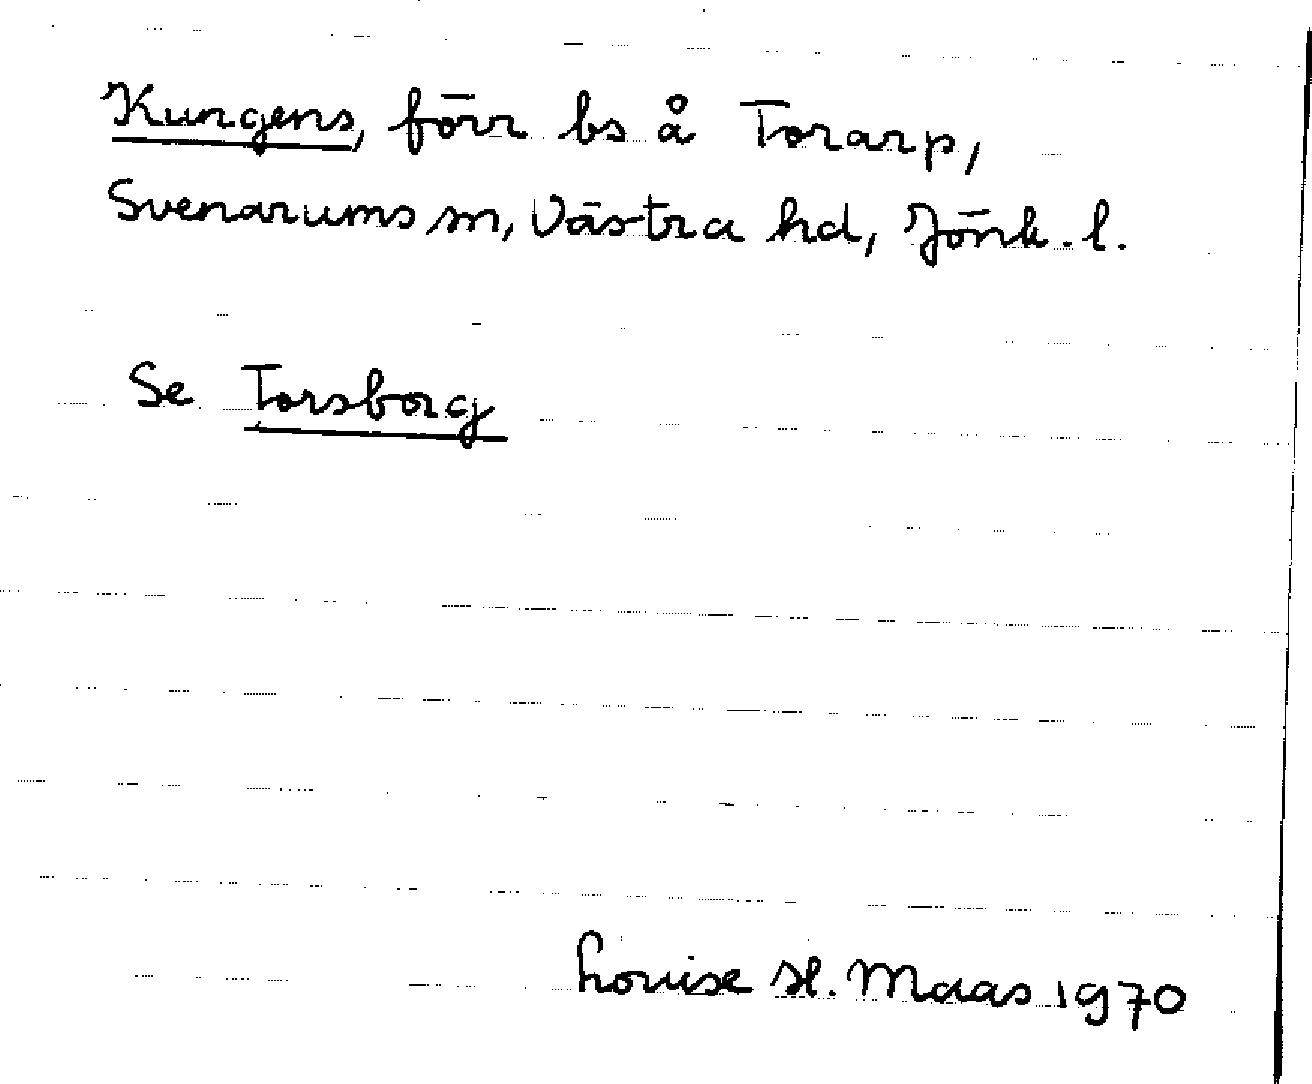 Kungens, förr bs å Torarp,
Svenarums sn, Västra hd, Jönk. l.
Se Torsborg
Louise H. Maas 1970